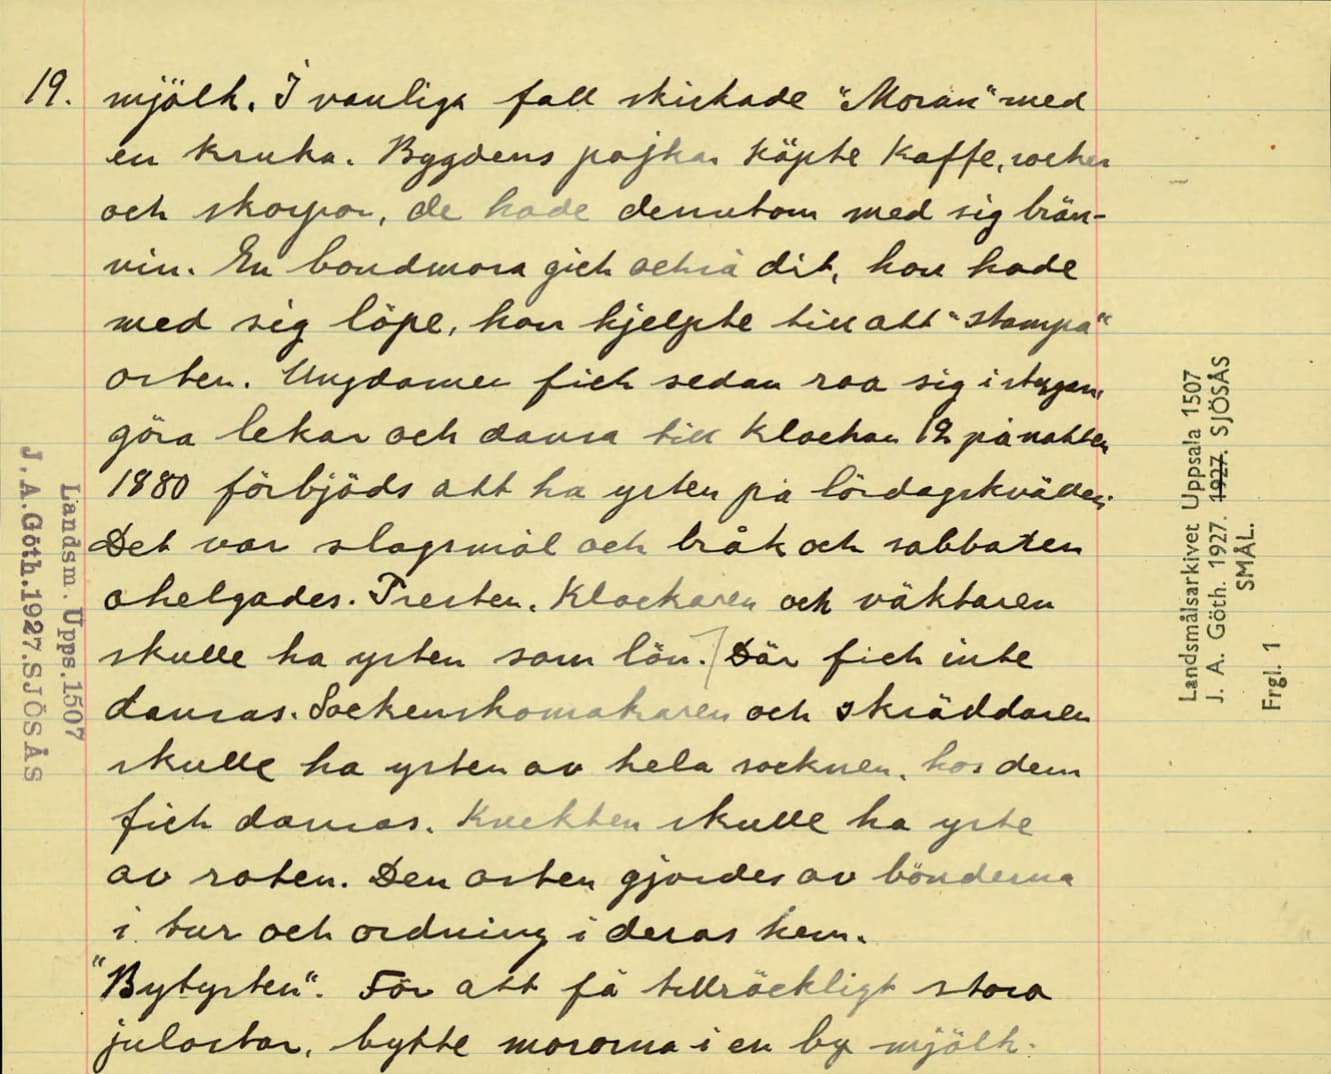 19. mjölk. I vanliga fall skickade "Moran" med
en kruka. Bygdens pojkar köpte kaffe, socker
och skorpor, de hade dessutom med sig brän-
vin. En bondmora gick också dit, hon hade
med sig löpe, hon hjelpte till att "stampa"
osten. Ungdomen fick sedan roa sig i stugan,
göra lekar och dansa till klockan 12 på natten
1880 förbjöds att ha ysten på lördagskvällen.
Det var slagsmål och bråk och sabbaten
ohelgades. Presten. Klockaren och väktaren
skulle ha ysten som lön. Där fick inte
dansas. Sockenskomakaren och skräddaren
skulle ha ysten av hela socknen, hos dem
fick dansas. Knekten skulle ha yste
av roten. Den osten gjordes av bönderna
i tur och ordning i deras hem.
"Bytysten". För att få tillräckligt stora
julostar, bytte mororna i en by mjölk.
Landsm. Upps. 1507
J. A. Göth. 1927. SJÖSÅS
Landsmålsarkivet Uppsala 1507
J. A. Göth. 1927. 1927. SJÖSÅS
SMÅL.
Frgl. 1